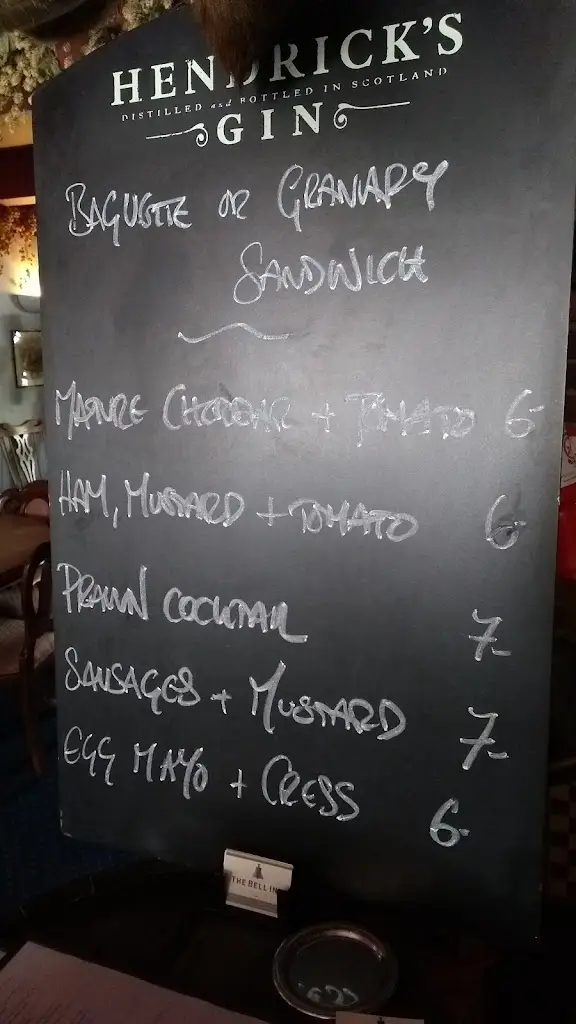 HENDRICK'S
DISTILLED and BOTTLED IN SCOTLAND
GIN
BAGUETTE OR GRANARY
SANDWICH
MATURE CHEDDAR + TOMATO 6-
HAM, MUSTARD + TOMATO 6-
PRAWN COCKTAIL 7-
SAUSAGES + MUSTARD 7-
EGG MAYO + CRESS 6-
THE BELL IN